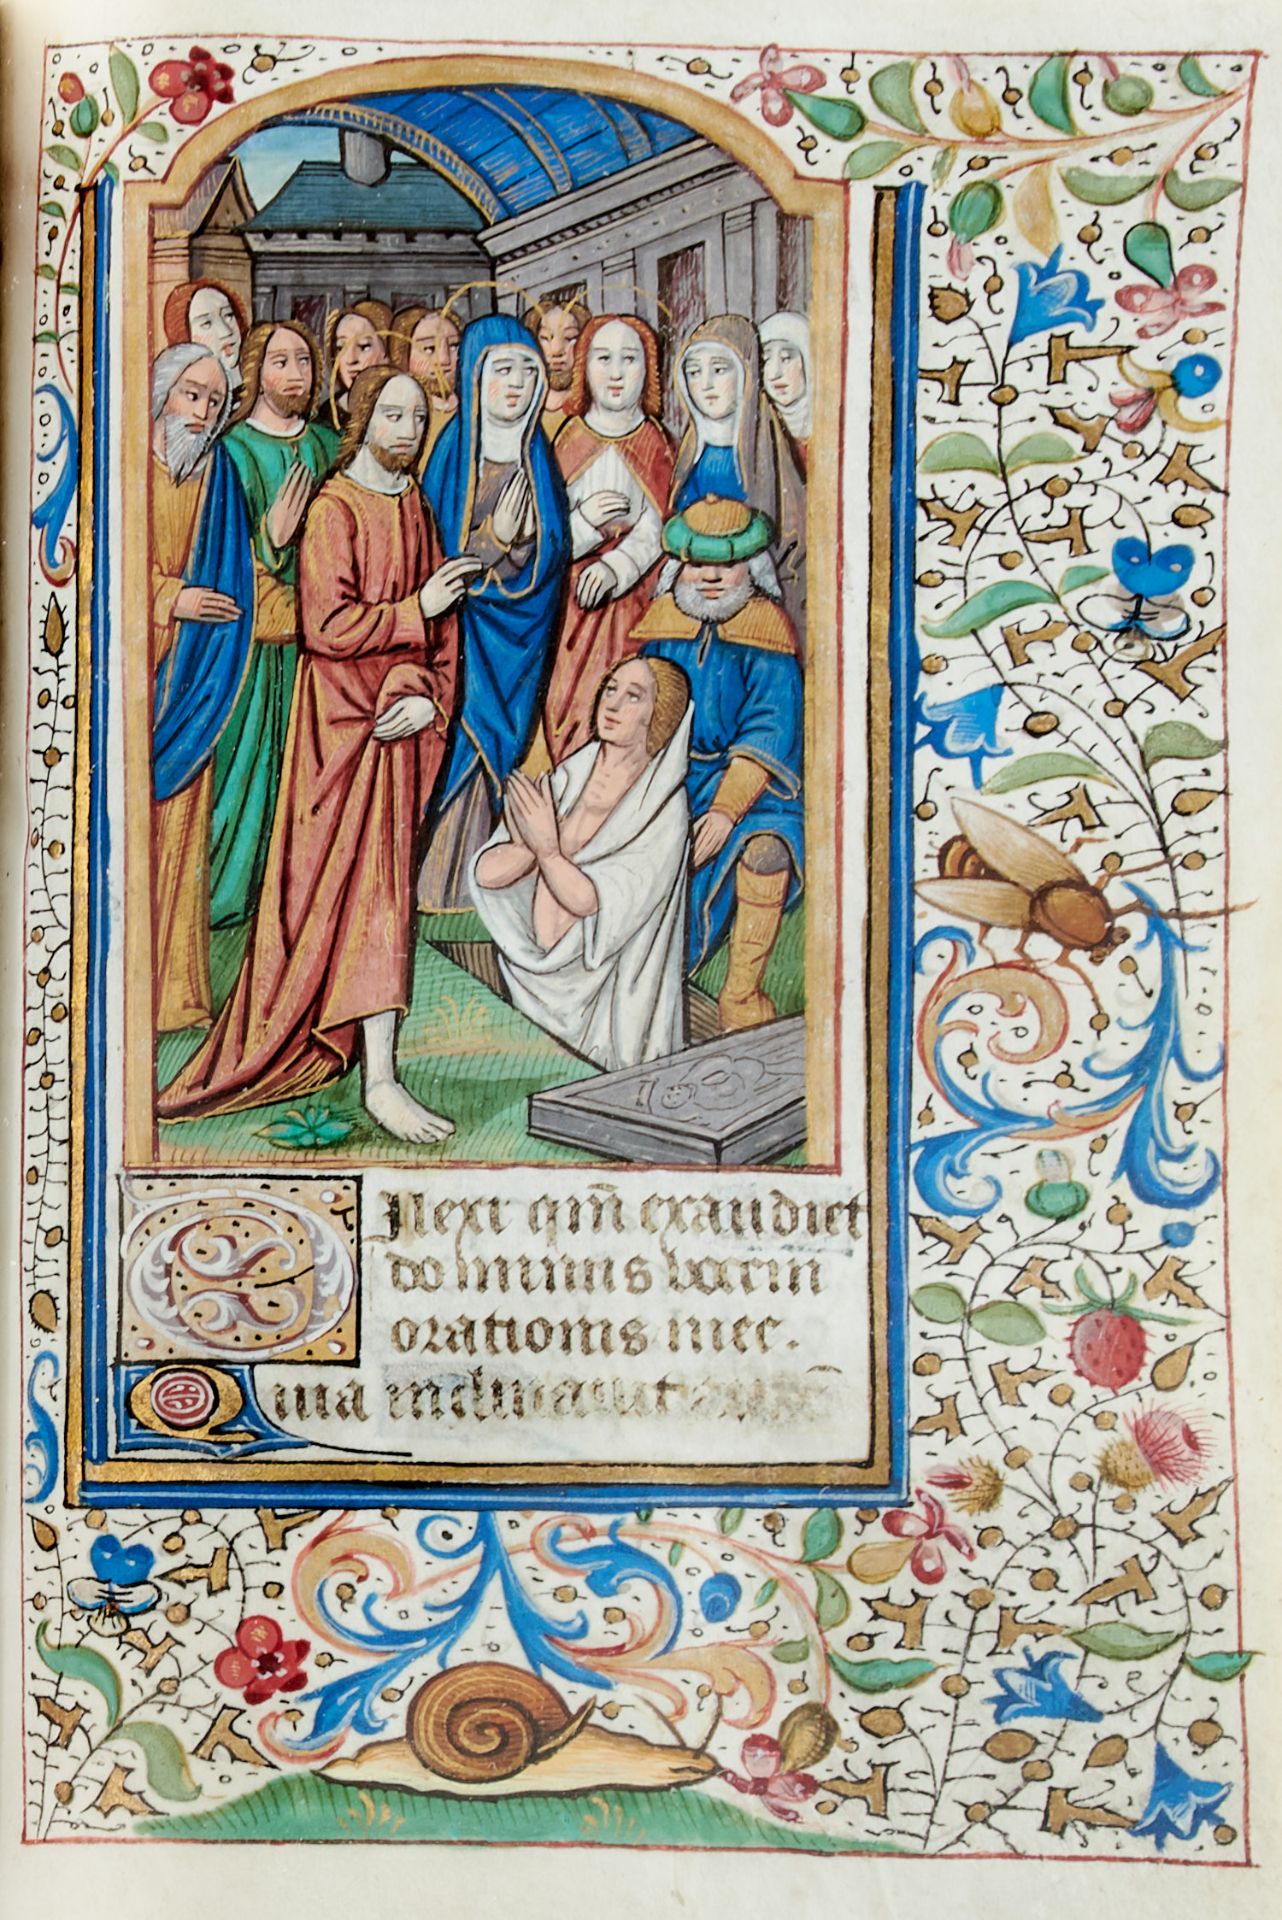 Dilexi qm̄ exaudiet
dominus vocem
orationis mee.
Quia inclinauit aurē